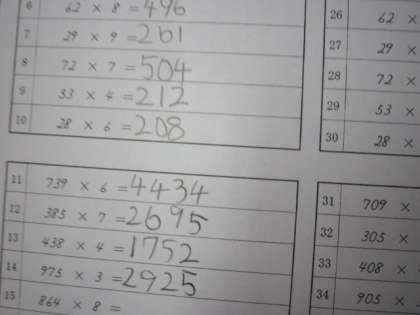 6 62 × 8 = 496
7 29 × 9 = 261
8 72 × 7 = 504
9 53 × 4 = 212
10 28 × 6 = 208
11 739 × 6 = 4434
12 385 × 7 = 2695
13 438 × 4 = 1752
14 975 × 3 = 2925
15 864 × 8 =
26 62 ×
27 29 ×
28 72 ×
29 53 ×
30 28 ×
31 709 ×
32 305 ×
33 408 ×
34 905 ×